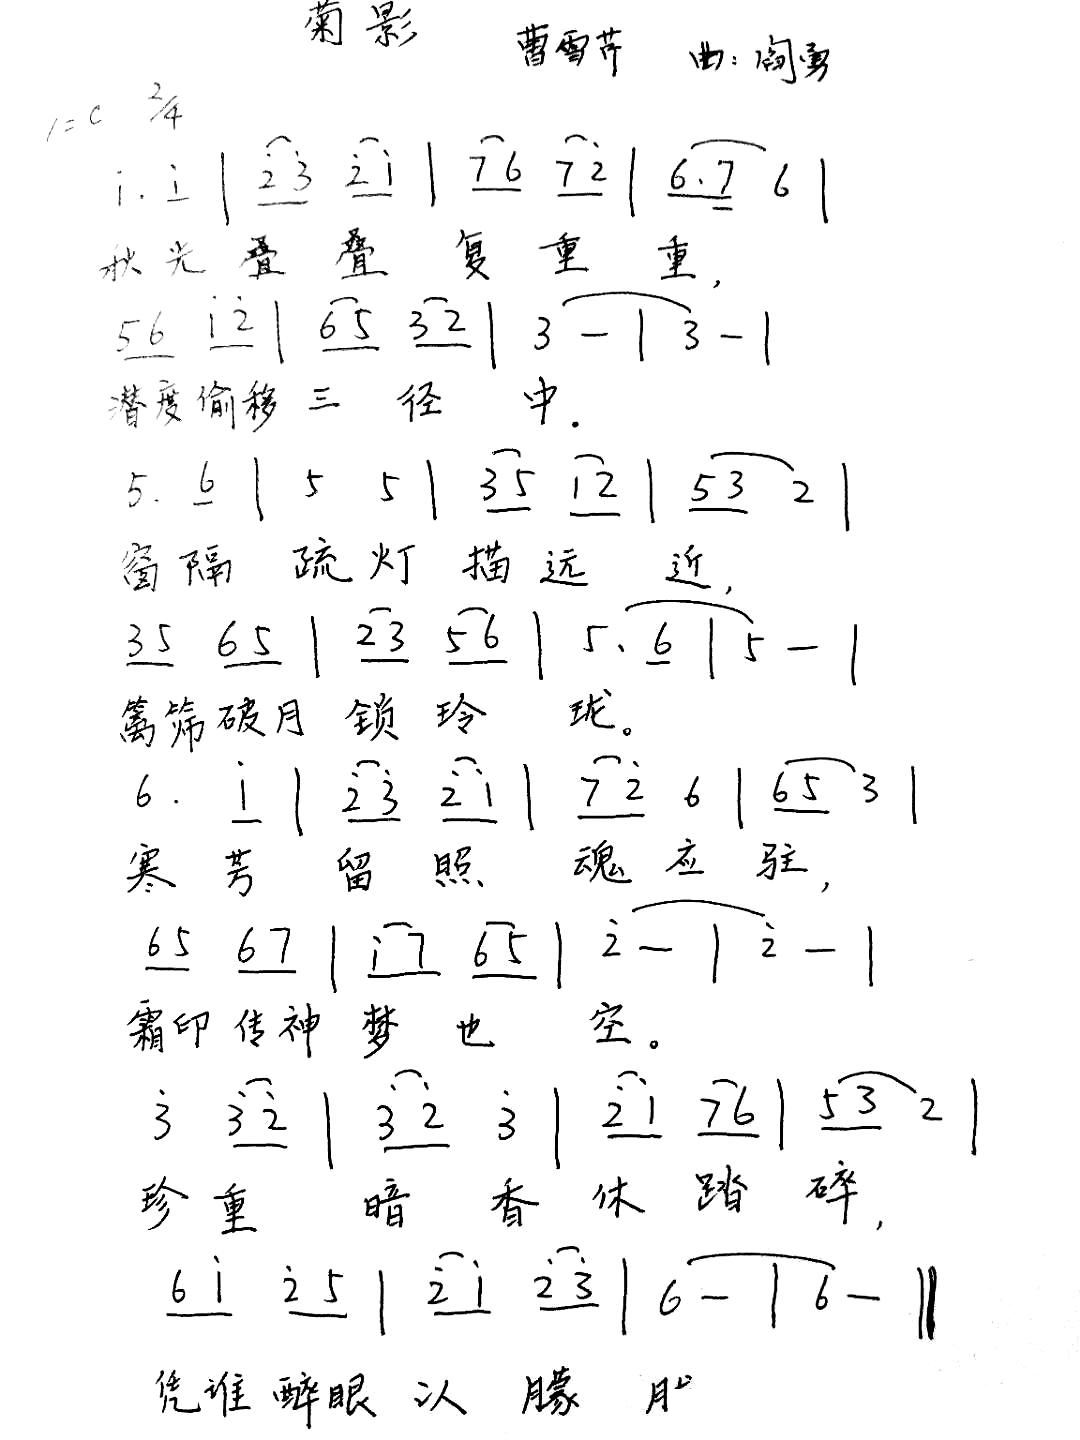 菊影
曹雪芹 曲：阎勇
1=C 2/4
i. i | 2̇3̇ 2̇i | 76 72̇ | 6.7 6 |
秋光叠叠复重重，
56 i2̇ | 65 32 | 3 — | 3 — |
潜度偷移三径中.
5. 6 | 5 5 | 35 12 | 53 2 |
窗隔疏灯描远近，
35 65 | 23 56 | 5. 6 | 5 — |
篱筛破月锁玲珑。
6. i | 2̇3̇ 2̇i | 72̇ 6 | 65 3 |
寒芳留照魂应驻，
65 67 | i7 65 | 2̇ — | 2̇ — |
霜印传神梦也空。
3̇ 3̇2̇ | 3̇2̇ 3̇ | 2̇i 76 | 53 2 |
珍重暗香休踏碎，
6i 2̇5 | 2̇i 2̇3̇ | 6 — | 6 — ‖
凭谁醉眼认朦